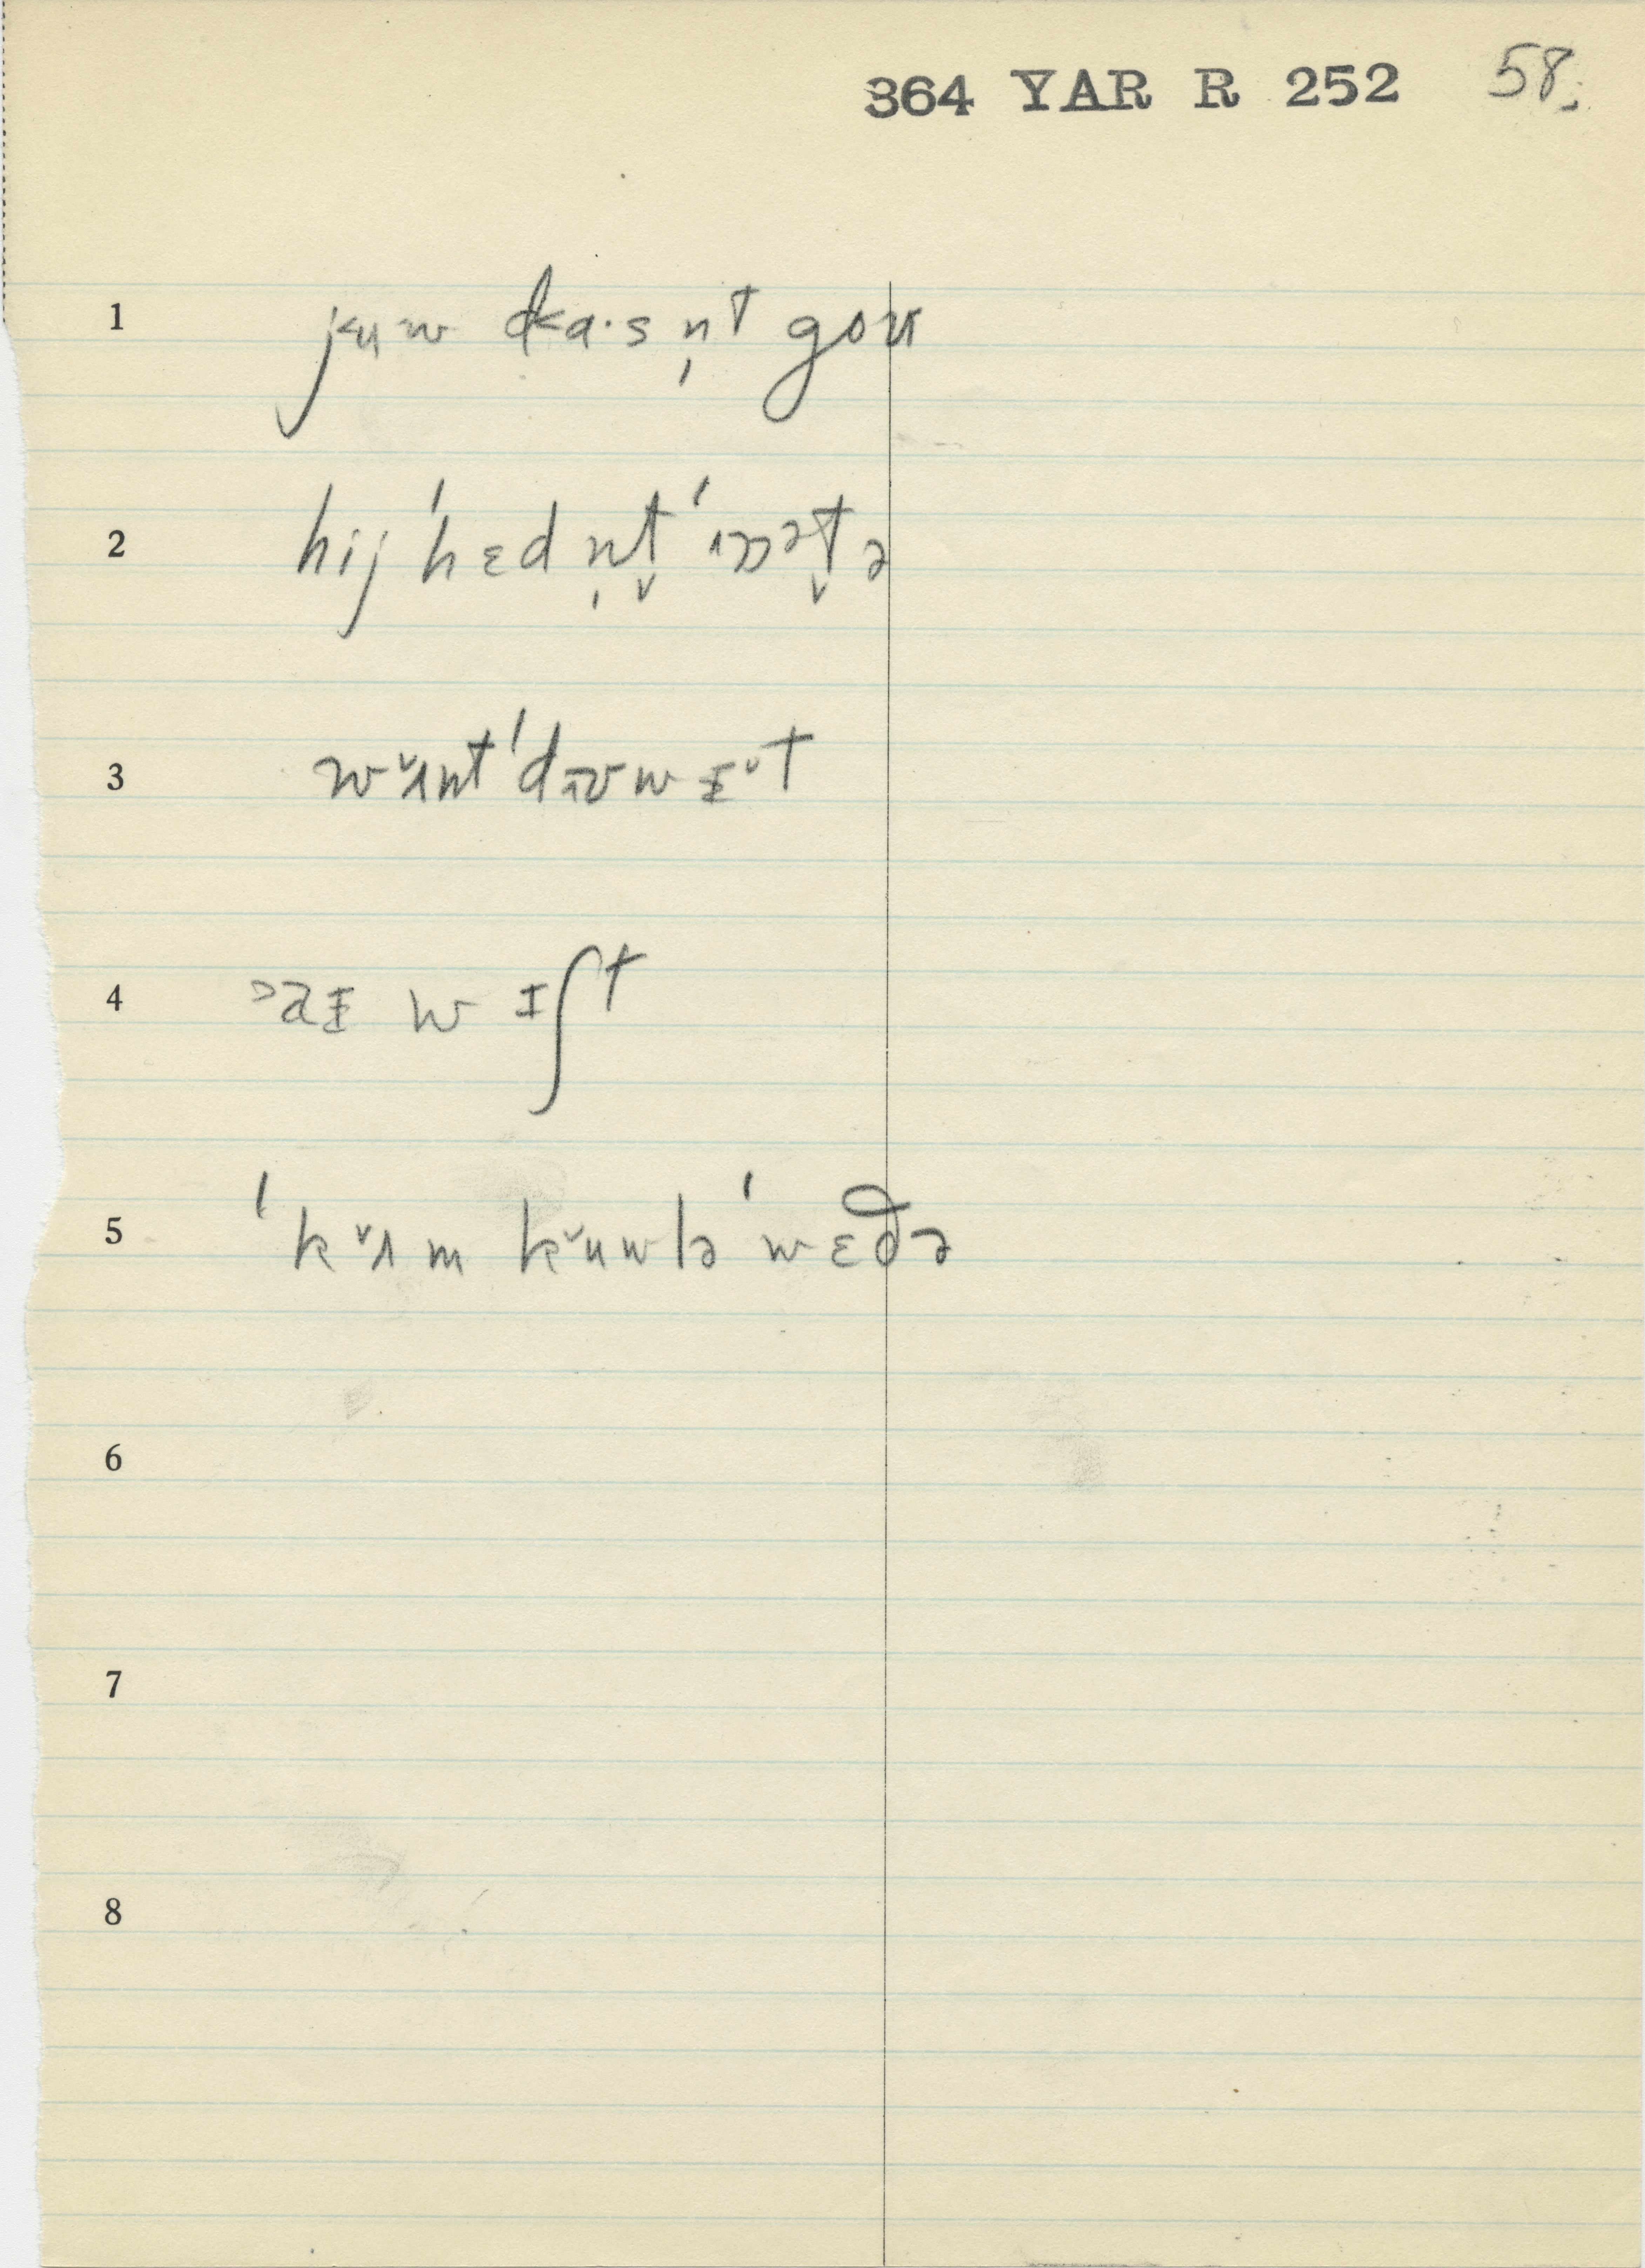 364 YAR R 252 58.
1 jʉw da·sn̩t goʊ
2 hij ˈhɛd n̩t̬ ˈɪɔət̬ ə
3 wʌnt ˈdɪʊw ɪt
4 aɪ w ɪʃt
5 ˈkʌm kʉwlə ˈwɛðə
6
7
8